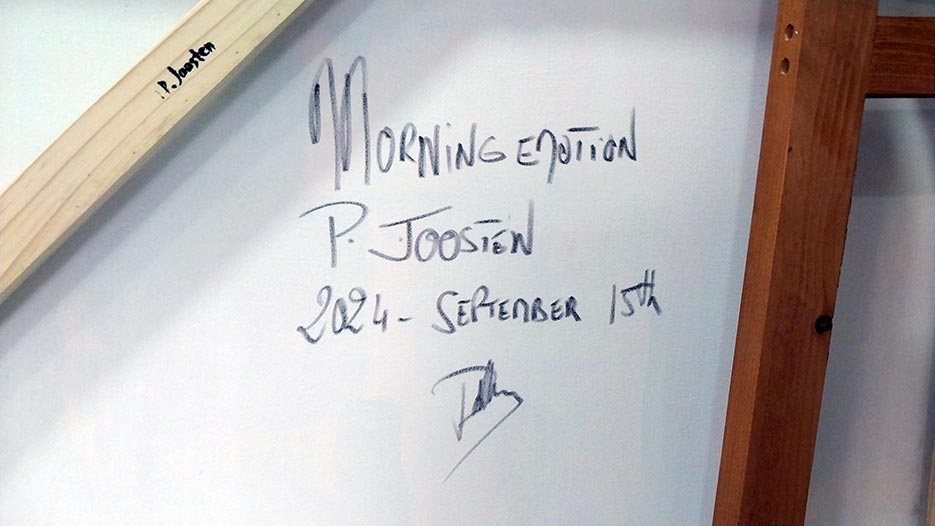 P. Joosten
MORNING EMOTION
P. JOOSTEN
2024 - SEPTEMBER 15th